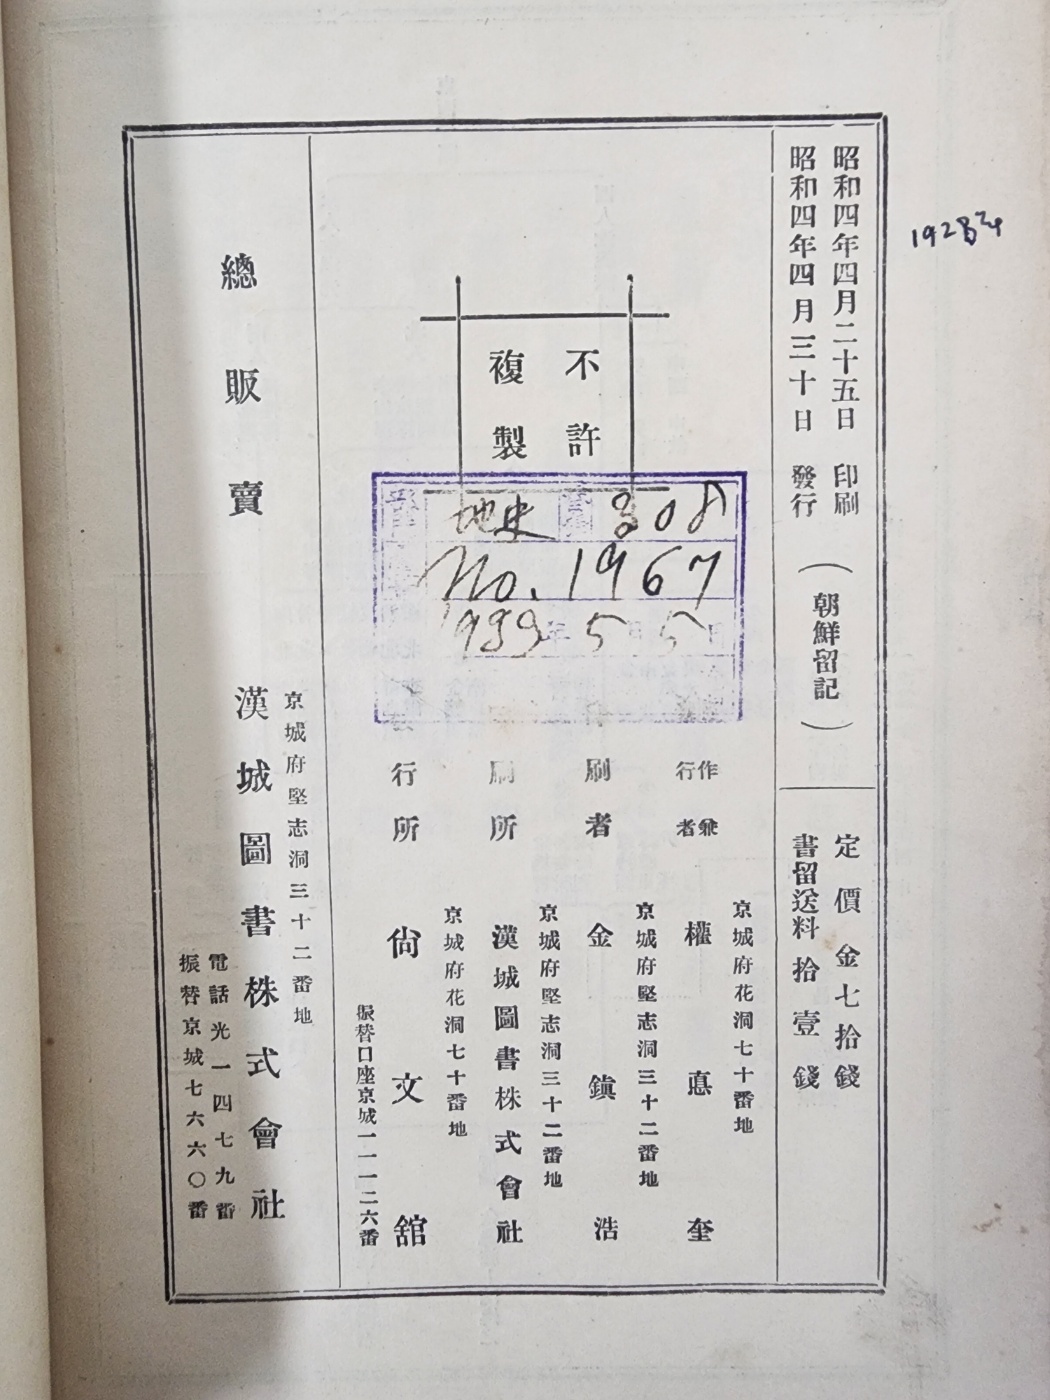 昭和四年四月二十五日 印刷
昭和四年四月三十日 發行
(朝鮮留記)
定價金七拾錢
書留送料拾壹錢
1928年
不許
複製
地史 308
No. 1967
1939 5 5
京城府花洞七十番地
作兼
行者
權悳奎
京城府堅志洞三十二番地
刷者 金鎭浩
京城府堅志洞三十二番地
刷所 漢城圖書株式會社
京城府花洞七十番地
行所 尙文舘
振替口座京城一一一二六番
京城府堅志洞三十二番地
總販賣 漢城圖書株式會社
電話光一四七九番
振替京城七六六〇番